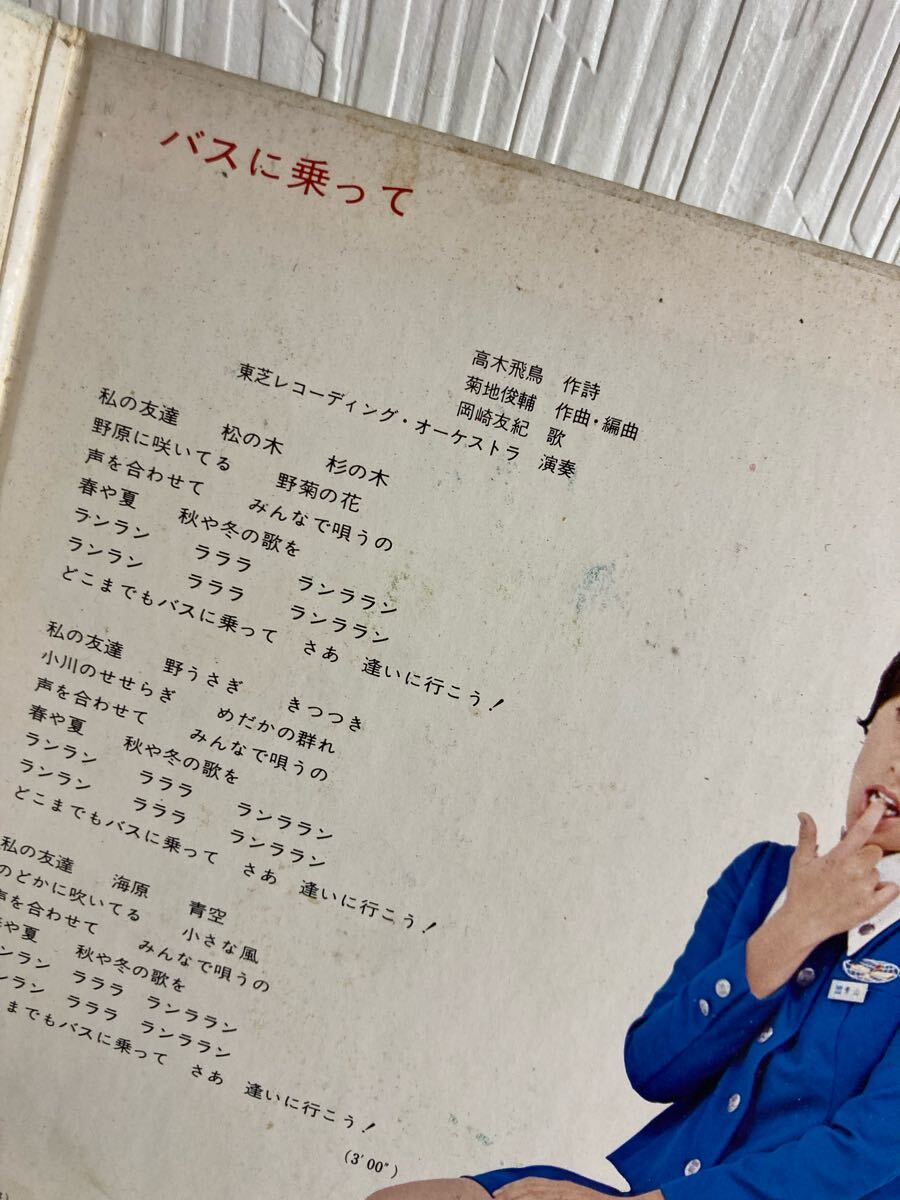 バスに乗って
高木飛鳥 作詩
菊地俊輔 作曲・編曲
岡崎友紀 歌
東芝レコーディング・オーケストラ 演奏
私の友達 松の木 杉の木
野原に咲いてる 野菊の花
声を合わせて みんなで唄うの
春や夏 秋や冬の歌を
ランラン ラララ ランララン
ランラン ラララ ランララン
どこまでもバスに乗って さあ 逢いに行こう!
私の友達 野うさぎ きつつき
小川のせせらぎ めだかの群れ
声を合わせて みんなで唄うの
春や夏 秋や冬の歌を
ランラン ラララ ランララン
ランラン ラララ ランララン
どこまでもバスに乗って さあ 逢いに行こう!
私の友達 海原 青空
のどかに吹いてる 小さな風
声を合わせて みんなで唄うの
や夏 秋や冬の歌を
ンラン ラララ ランララン
ンラン ラララ ランララン
までもバスに乗って さあ 逢いに行こう!
(3'00")
青山